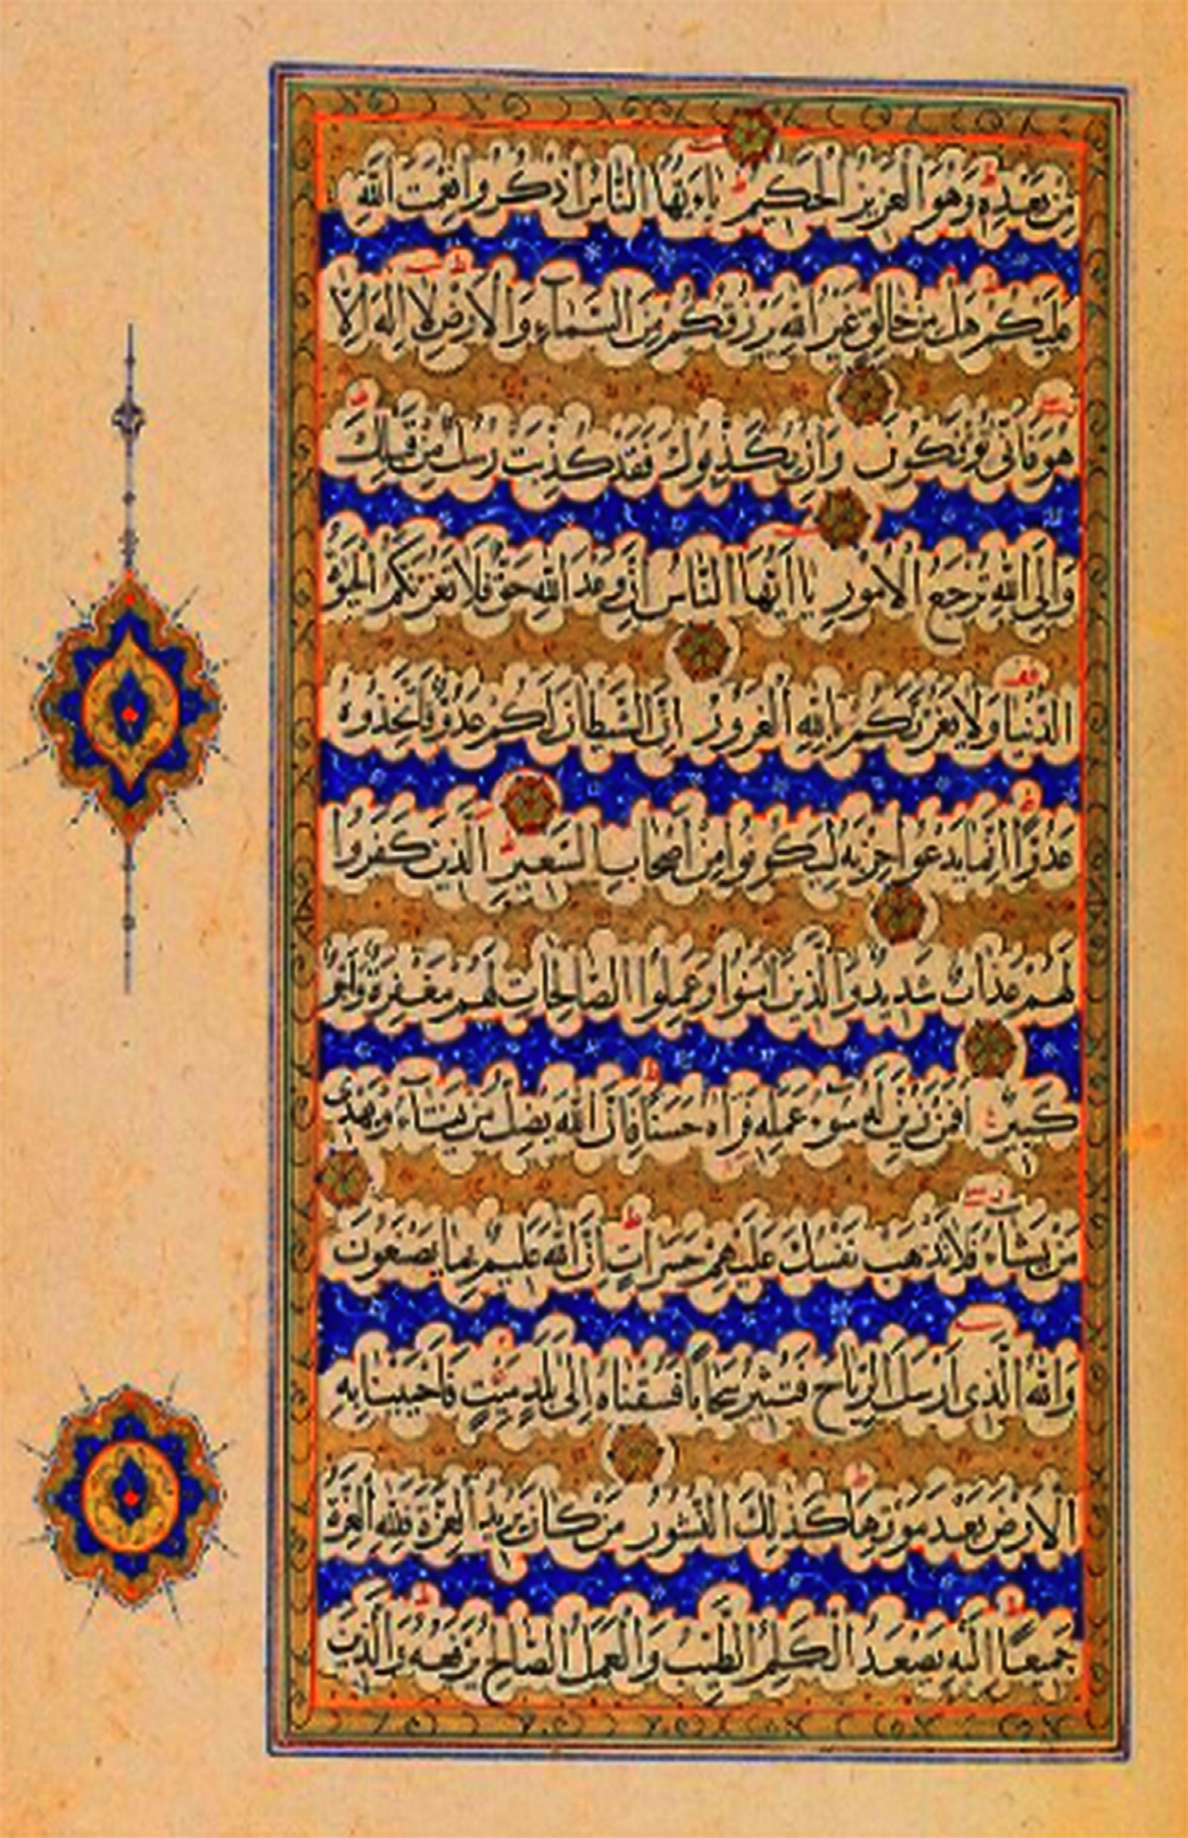 مِنْ بَعْدِهِ وَهُوَ الْعَزِيزُ الْحَكِيمُ يَاءَيُّهَا النَّاسُ اذْكُرُوا نِعْمَتَ اللهِ
عَلَيْكُمْ هَلْ مِنْ خَالِقٍ غَيْرُ اللهِ يَرْزُقُكُمْ مِنَ السَّمَاءِ وَالْاَرْضِ لَا اِلٰهَ اِلَّا
هُوَ فَاَنّٰى تُؤْفَكُونَ وَاِنْ يُكَذِّبُوكَ فَقَدْ كُذِّبَتْ رُسُلٌ مِنْ قَبْلِكَ
وَاِلَى اللهِ تُرْجَعُ الْاُمُورُ يَا اَيُّهَا النَّاسُ اِنَّ وَعْدَ اللهِ حَقٌّ فَلَا تَغُرَّنَّكُمُ الْحَيٰوةُ
الدُّنْيَا وَلَا يَغُرَّنَّكُمْ بِاللهِ الْغَرُورُ اِنَّ الشَّيْطَانَ لَكُمْ عَدُوٌّ فَاتَّخِذُوهُ
عَدُوًّا اِنَّمَا يَدْعُوا حِزْبَهُ لِيَكُونُوا مِنْ اَصْحَابِ السَّعِيرِ اَلَّذِينَ كَفَرُوا
لَهُمْ عَذَابٌ شَدِيدٌ وَالَّذِينَ اٰمَنُوا وَعَمِلُوا الصَّالِحَاتِ لَهُمْ مَغْفِرَةٌ وَاَجْرٌ
كَبِيرٌ اَفَمَنْ زُيِّنَ لَهُ سُوءُ عَمَلِهِ فَرَاٰهُ حَسَنًا فَاِنَّ اللهَ يُضِلُّ مَنْ يَشَاءُ وَيَهْدِى
مَنْ يَشَاءُ فَلَا تَذْهَبْ نَفْسُكَ عَلَيْهِمْ حَسَرَاتٍ اِنَّ اللهَ عَلِيمٌ بِمَا يَصْنَعُونَ
وَاللهُ الَّذِى اَرْسَلَ الرِّيَاحَ فَتُثِيرُ سَحَابًا فَسُقْنَاهُ اِلٰى بَلَدٍ مَيِّتٍ فَاَحْيَيْنَا بِهِ
الْاَرْضَ بَعْدَ مَوْتِهَا كَذٰلِكَ النُّشُورُ مَنْ كَانَ يُرِيدُ الْعِزَّةَ فَلِلّٰهِ الْعِزَّةُ
جَمِيعًا اِلَيْهِ يَصْعَدُ الْكَلِمُ الطَّيِّبُ وَالْعَمَلُ الصَّالِحُ يَرْفَعُهُ وَالَّذِينَ